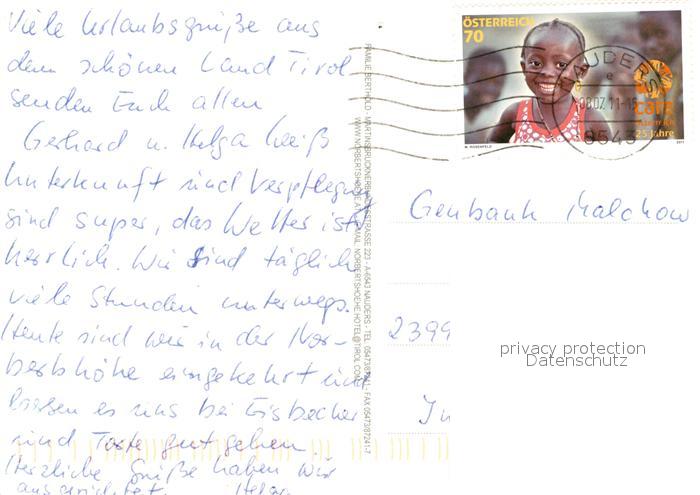 Viele Urlaubsgrüße aus
dem schönen Land Tirol
senden Euch allen
Gerhard u. Helga Weiß
Unterkunft und Verpflegung
sind super, das Wetter ist
herrlich. Wir sind täglich
viele Stunden unterwegs.
Heute sind wir in der Nor-
bertshöhe eingekehrt und
lassen es uns bei Eisbecher
und Torte gut gehen.
Herzliche Grüße haben wir
ausgerichtet. Helga
FAMILIE BERTHOLD - MARTINSBRUCKNERBUNDESSTRASSE 223 - A-6543 NAUDERS - TEL. 05473/87241 - FAX 05473/87241-7
WWW.NORBERTSHOEHE.AT MAIL: NORBERTSHOEHE.HOTEL@TIROL.COM
ÖSTERREICH
70
NAUDERS
6543
care
25 Jahre
M. ROSENFELD
2011
Genbank Malchow
2399
privacy protection
Datenschutz